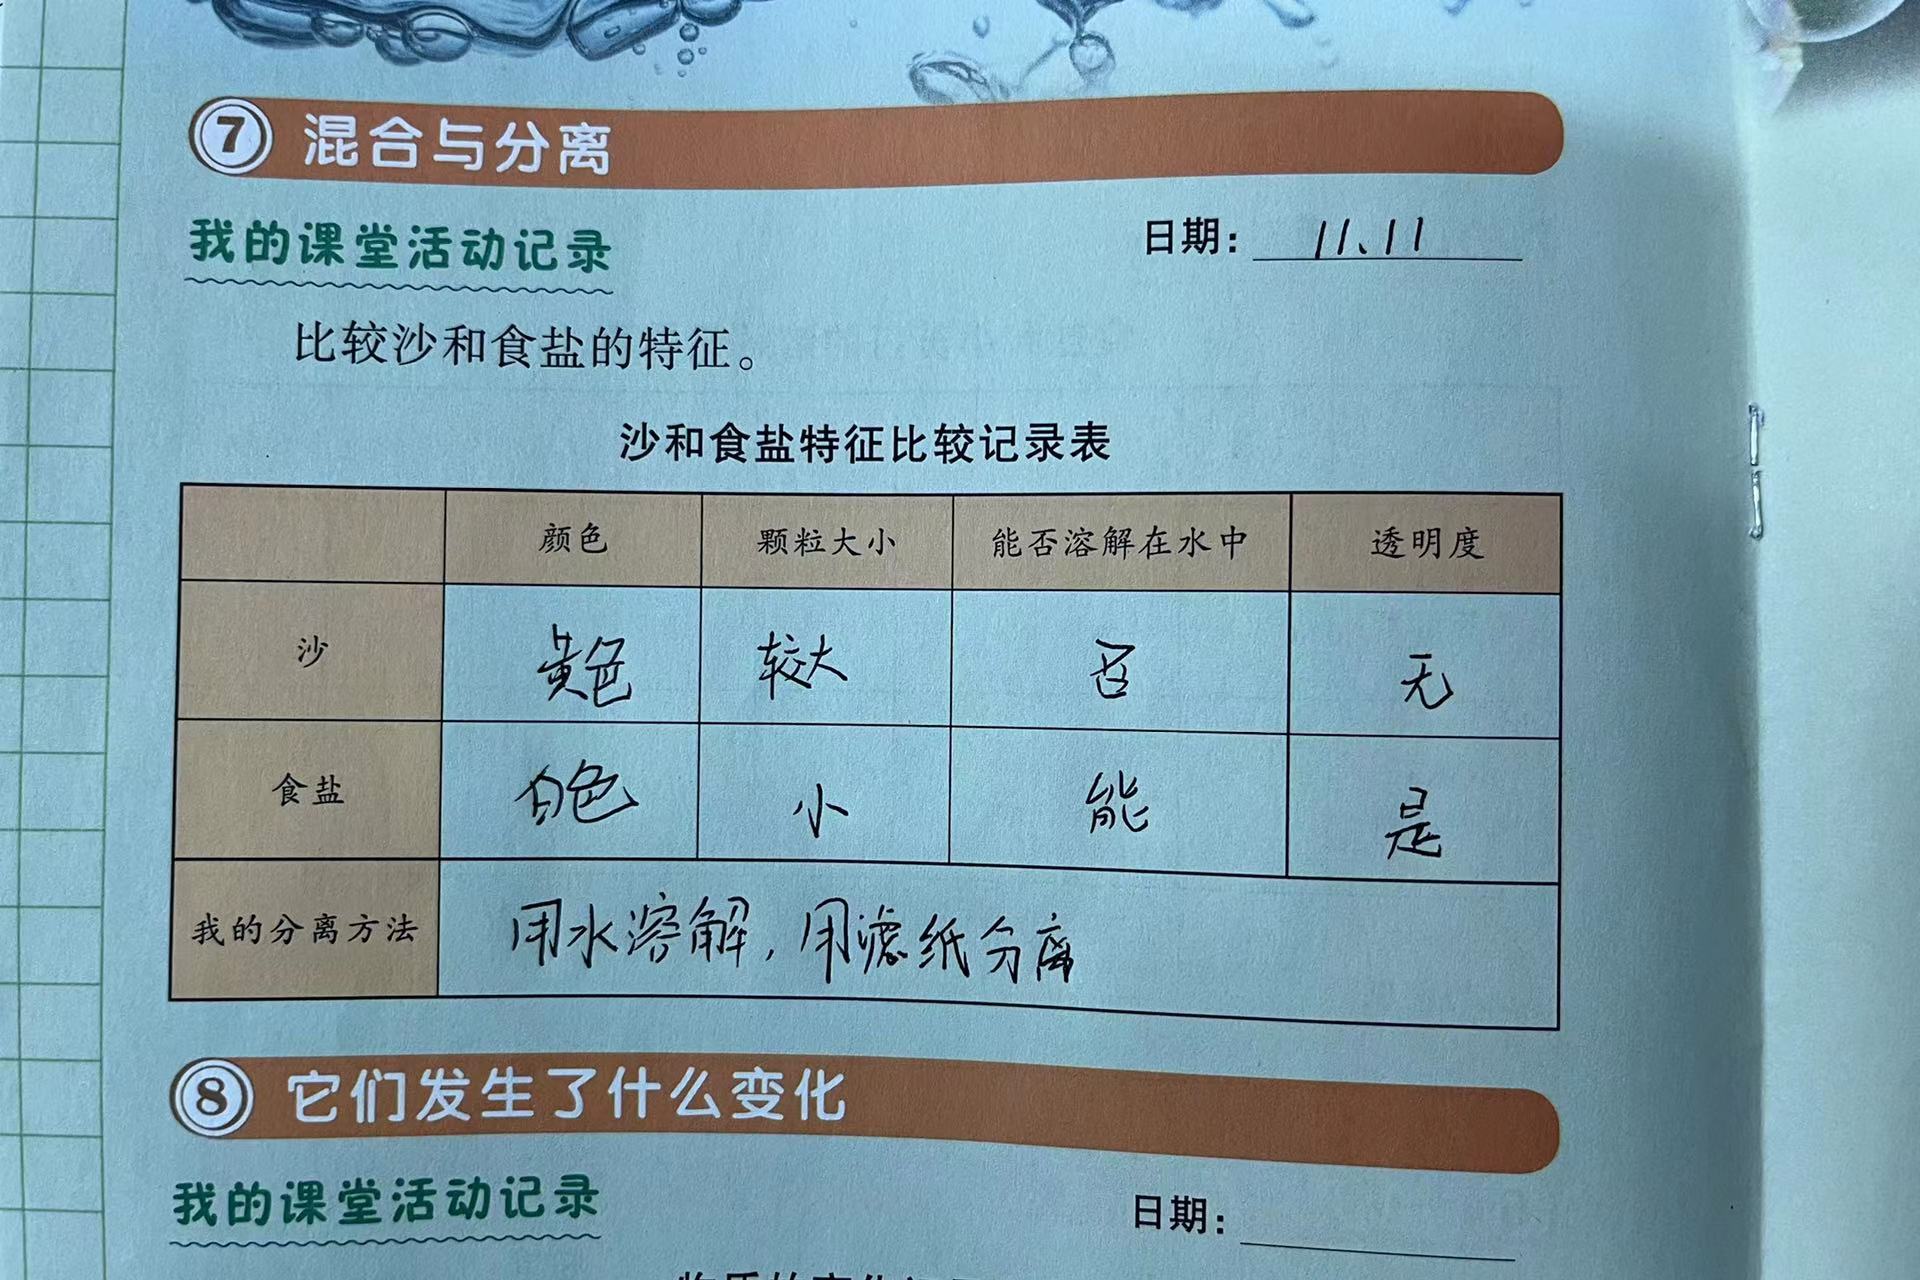 7 混合与分离
我的课堂活动记录 日期: 11、11
比较沙和食盐的特征。
沙和食盐特征比较记录表
颜色 颗粒大小 能否溶解在水中 透明度
沙 黄色 较大 否 无
食盐 白色 小 能 是
我的分离方法 用水溶解,用滤纸分离
8 它们发生了什么变化
我的课堂活动记录 日期: